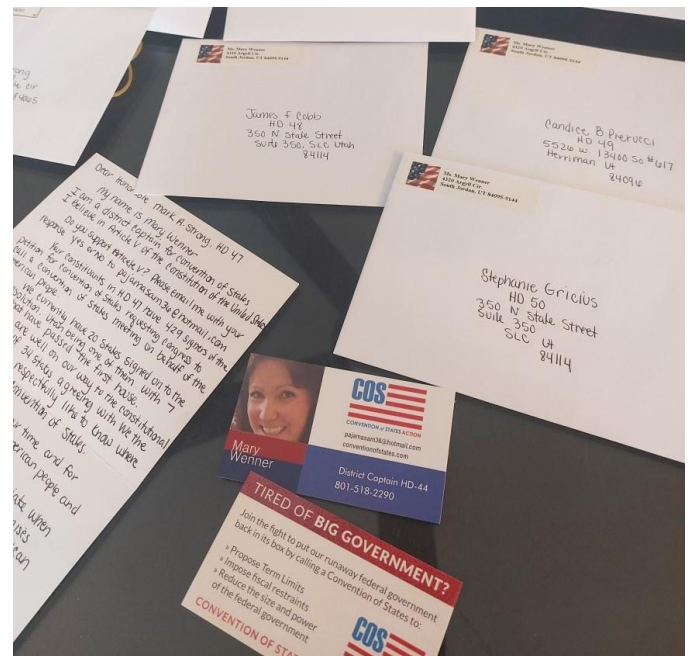 rong
Cir
Ms. Mary Wenner
4320 Argyll Cir.
South Jordan, UT 84095-9144
James F Cobb
HD 48
350 N State Street
Suite 350, SLC Utah
84114
Ms. Mary Wenner
4320 Argyll Cir.
South Jordan, UT 84095-9144
Candice B Pierucci
HD 49
5526 W. 13400 So #617
Herriman Ut
84096
Ms. Mary Wenner
4320 Argyll Cir.
South Jordan, UT 84095-9144
Stephanie Gricius
HD 50
350 N State Street
Suite 350 Ut
SLC
84114
Dear Honorable Mark A. Strong, HD 47
My name is Mary Wenner
I am a district captain for convention of States
I believe in Article V of the constitution of the United States
Do you support Article V? Please email me with your
response yes or no to pajamasam36@hotmail.com
Your constituents in HD 47 have 429 signers of the
petition for convention of States requesting congress to
call a convention of States meeting on behalf of the
erican people.
We currently have 20 States signed on to the
solution. Utah being one of them with 7
hat have passed the first house.
are well on our way to the constitutional
of 34 States agreeing with We the
respectfully like to know where
onvention of States.
ur time and for
merican people and
iate when
ises
ican
Mary
Wenner
COS
CONVENTION of STATES ACTION
pajamasam36@hotmail.com
conventionofstates.com
District Captain HD-44
801-518-2290
TIRED OF BIG GOVERNMENT?
Join the fight to put our runaway federal government
back in its box by calling a Convention of States to:
» Propose Term Limits
» Impose fiscal restraints
» Reduce the size and power
of the federal government
CONVENTION OF STA
COS